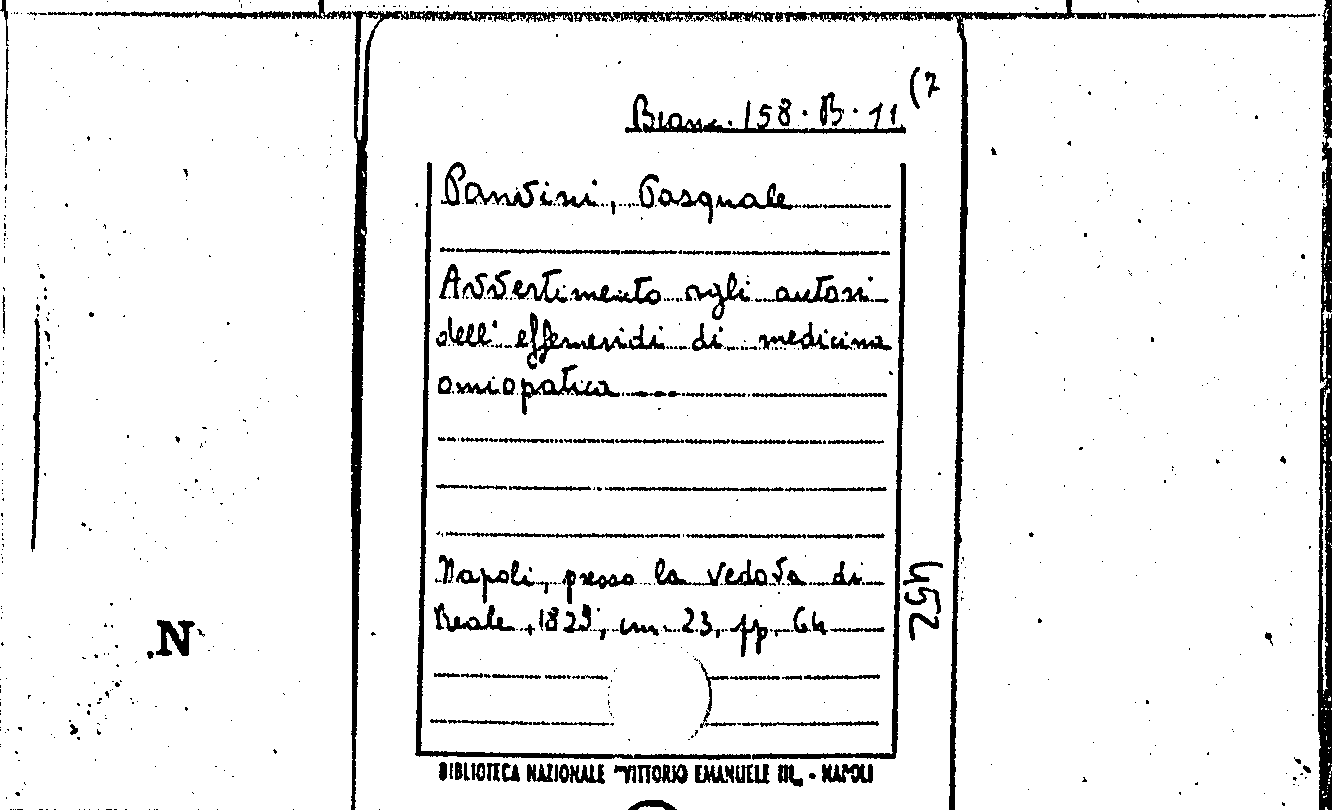 Branc. 158. B. 11 (7
Panvini, Pasquale
Avvertimento agli autori
dell' effemeridi di medicina
omiopatica ...
Napoli, presso la vedova di
Reale, 1829, cm. 23, pp. 64
452
N
BIBLIOTECA NAZIONALE "VITTORIO EMANUELE III„ - NAPOLI